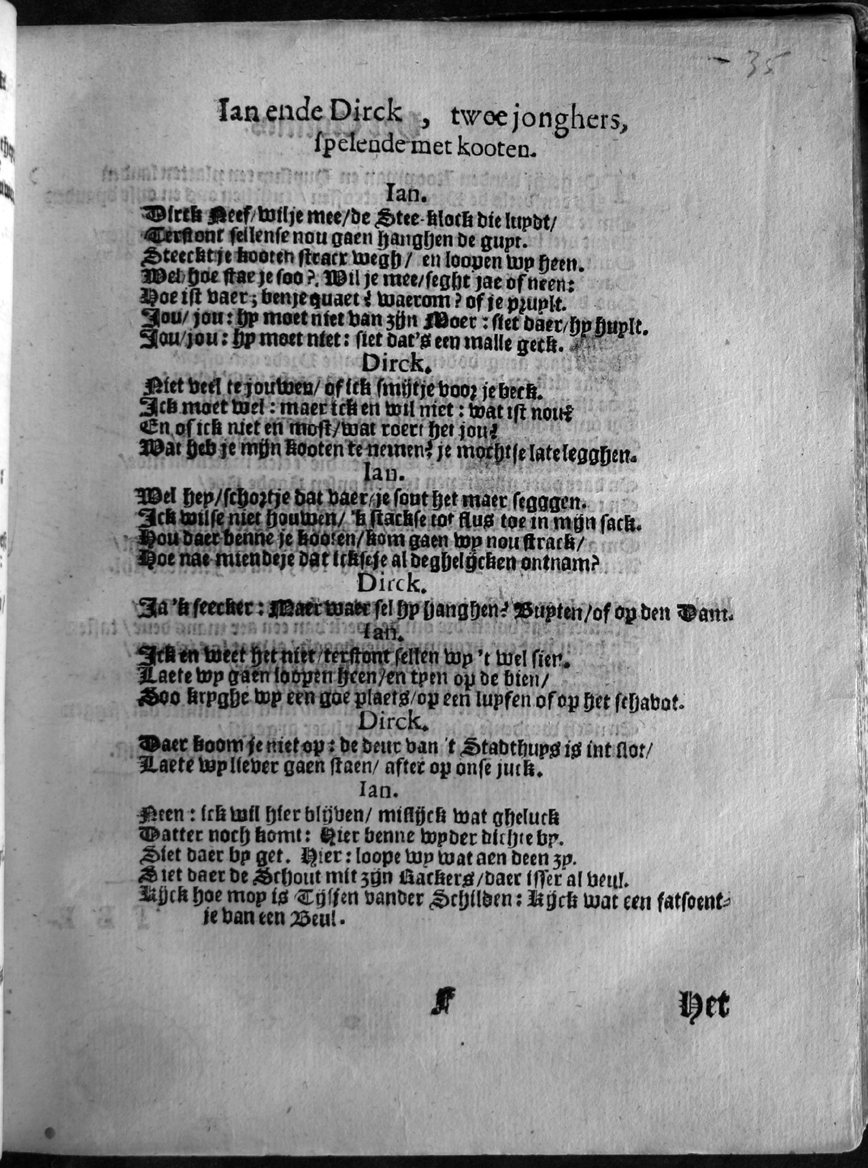 35
Ian ende Dirck, twee jonghers,
spelende met kooten.
Ian.
Dirck Neef/wilje mee/de Stee-klock die luydt/
Terstont sellense nou gaen hanghen de guyt.
Steeckt je kooten stracx wegh/ en loopen wy heen.
Wel hoe stae je soo? Wil je mee/seght jae of neen:
Hoe ist vaer; benje quaet? waerom? of je pruylt.
Jou/ jou: hy moet niet van zijn Moer: siet daer/hy huylt.
Jou/jou: hy moet niet: siet dat's een malle geck.
Dirck.
Niet veel te jouwen/ of ick smijtje voor je beck.
Ick moet wel: maer ick en wil niet: wat ist nou?
En of ick niet en most/wat roert het jou?
Wat heb je mijn kooten te nemen? je mochtse late legghen.
Ian.
Wel hey/schortje dat vaer/je sout het maer segggen.
Ick wilse niet houwen/ 'k stackse tot flus toe in mijn sack.
Hou daer benne je kooten/kom gaen wy nou strack/
Hoe nae miendeje dat ickseje al deghelijcken ontnam?
Dirck.
Ja 'k seecker: Maer waer sel hy hanghen? Buyten/of op den Dam.
Ian.
Ick en weet het niet/terstont sellen wy 't wel sien.
Laete wy gaen loopen heen/en tyen op de bien/
Soo kryghe wy een goe plaets/op een luyfen of op het schavot.
Dirck.
Daer koom je niet op: de deur van 't Stadthuys is int slot/
Laete wy liever gaen staen/ after op onse juck.
Ian.
Neen: ick wil hier blijven/ mislijck wat gheluck
Datter noch komt: Hier benne wy der dichte by.
Siet daer by get. Hier: loope wy wat aen deen zy.
Siet daer de Schout mit zijn Rackers/daer isser al veul.
Kijck hoe moy is Tijsjen vander Schilden: Kijck wat een fatsoent-
je van een Beul.
F
Het